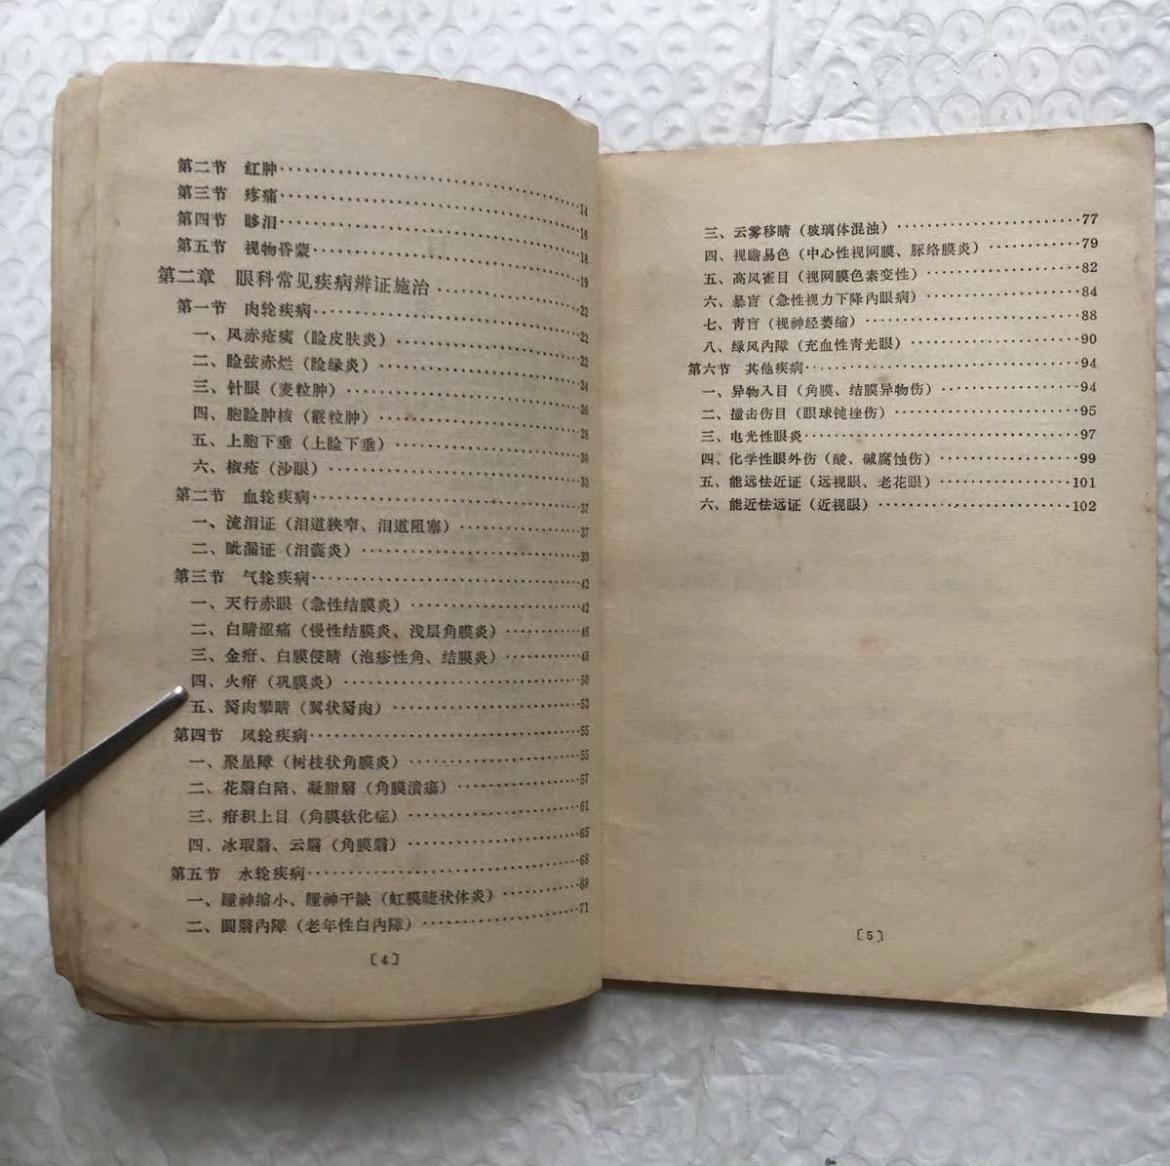 第二节 红肿……14
第三节 疼痛……16
第四节 眵泪……18
第五节 视物昏蒙……19
第二章 眼科常见疾病辨证施治……22
第一节 肉轮疾病……22
一、风赤疮痍（睑皮肤炎）……22
二、睑弦赤烂（睑缘炎）……24
三、针眼（麦粒肿）……26
四、胞睑肿核（霰粒肿）……28
五、上胞下垂（上睑下垂）……30
六、椒疮（沙眼）……33
第二节 血轮疾病……37
一、流泪证（泪道狭窄、泪道阻塞）……37
二、眦漏证（泪囊炎）……39
第三节 气轮疾病……42
一、天行赤眼（急性结膜炎）……42
二、白睛涩痛（慢性结膜炎、浅层角膜炎）……46
三、金疳、白膜侵睛（泡疹性角、结膜炎）……48
四、火疳（巩膜炎）……50
五、胬肉攀睛（翼状胬肉）……53
第四节 风轮疾病……55
一、聚星障（树枝状角膜炎）……55
二、花翳白陷、凝脂翳（角膜溃疡）……57
三、疳积上目（角膜软化症）……61
四、冰瑕翳、云翳（角膜翳）……65
第五节 水轮疾病……68
一、瞳神缩小、瞳神干缺（虹膜睫状体炎）……68
二、圆翳内障（老年性白内障）……71
〔4〕
三、云雾移睛（玻璃体混浊）……77
四、视瞻易色（中心性视网膜、脉络膜炎）……79
五、高风雀目（视网膜色素变性）……82
六、暴盲（急性视力下降内眼病）……84
七、青盲（视神经萎缩）……88
八、绿风内障（充血性青光眼）……90
第六节 其他疾病……94
一、异物入目（角膜、结膜异物伤）……94
二、撞击伤目（眼球钝挫伤）……95
三、电光性眼炎……97
四、化学性眼外伤（酸、碱腐蚀伤）……99
五、能远怯近证（远视眼、老花眼）……101
六、能近怯远证（近视眼）……102
〔5〕